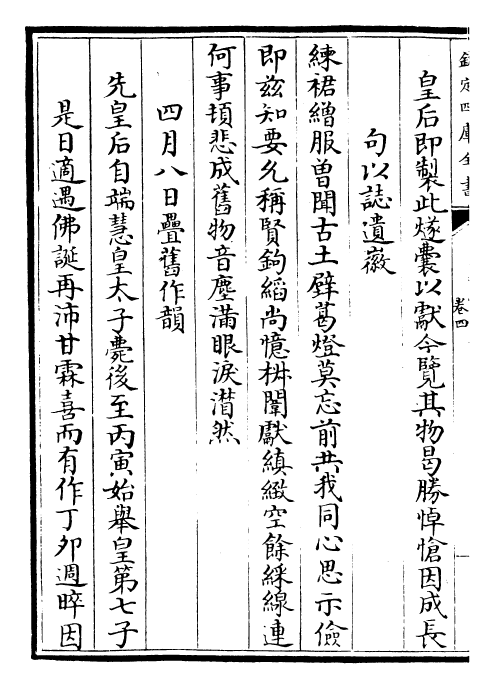 欽定四庫全書
卷四
皇后即製此燧囊以獻今覽其物曷勝悼愴因成長
句以誌遺徽
練裙繒服曽聞古土壁葛燈莫忘前共我同心思示儉
即兹知要允稱賢鉤縚尚憶椒闈獻縝緻空餘綵線連
何事頓悲成舊物音塵滿眼淚潸然
四月八日疊舊作韻
先皇后自端慧皇太子薨後至丙寅始舉皇第七子
是日適遇佛誕再沛甘霖喜而有作丁夘週晬因